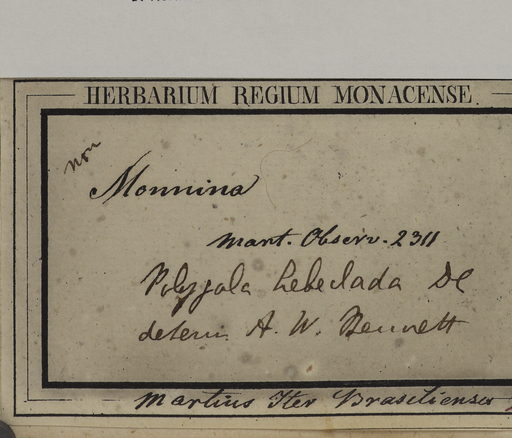 HERBARIUM REGIUM MONACENSE
non
Monnina
Mart. Observ. 2311
Polygala hebeclada DC
determ. A. W. Bennett
Martius Iter Brasiliense